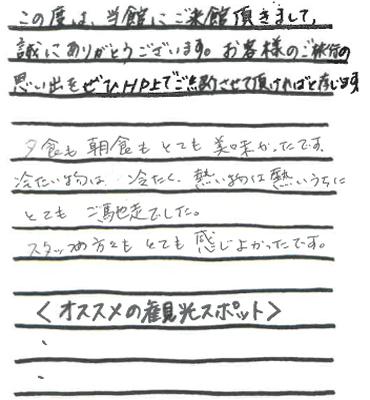 この度は、当館にご来館頂きまして、
誠にありがとうございます。お客様のご旅行の
思い出をぜひHP上でご紹介させて頂ければと存じます
夕食も朝食もとても美味かったです。
冷たい物は 冷たく、熱い物は熱いうちに
とても ご馳走でした。
スタッフの方々もとても感じよかったです。
＜オススメの観光スポット＞
・
・